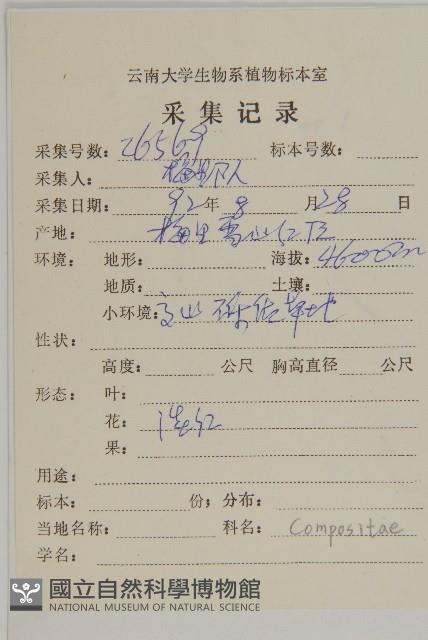 云南大学生物系植物标本室
采集记录
采集号数: 26569 标本号数:
采集人: 梅里
采集日期: 92年8月28日
产地: 梅里雪山
环境: 地形: 海拔: 4600m
地质: 土壤:
小环境: 高山 草地
性状:
高度: 公尺 胸高直径 公尺
形态: 叶:
花: 浅红
果:
用途:
标本: 份; 分布:
当地名称: 科名: Compositae
学名:
國立自然科學博物館
NATIONAL MUSEUM OF NATURAL SCIENCE